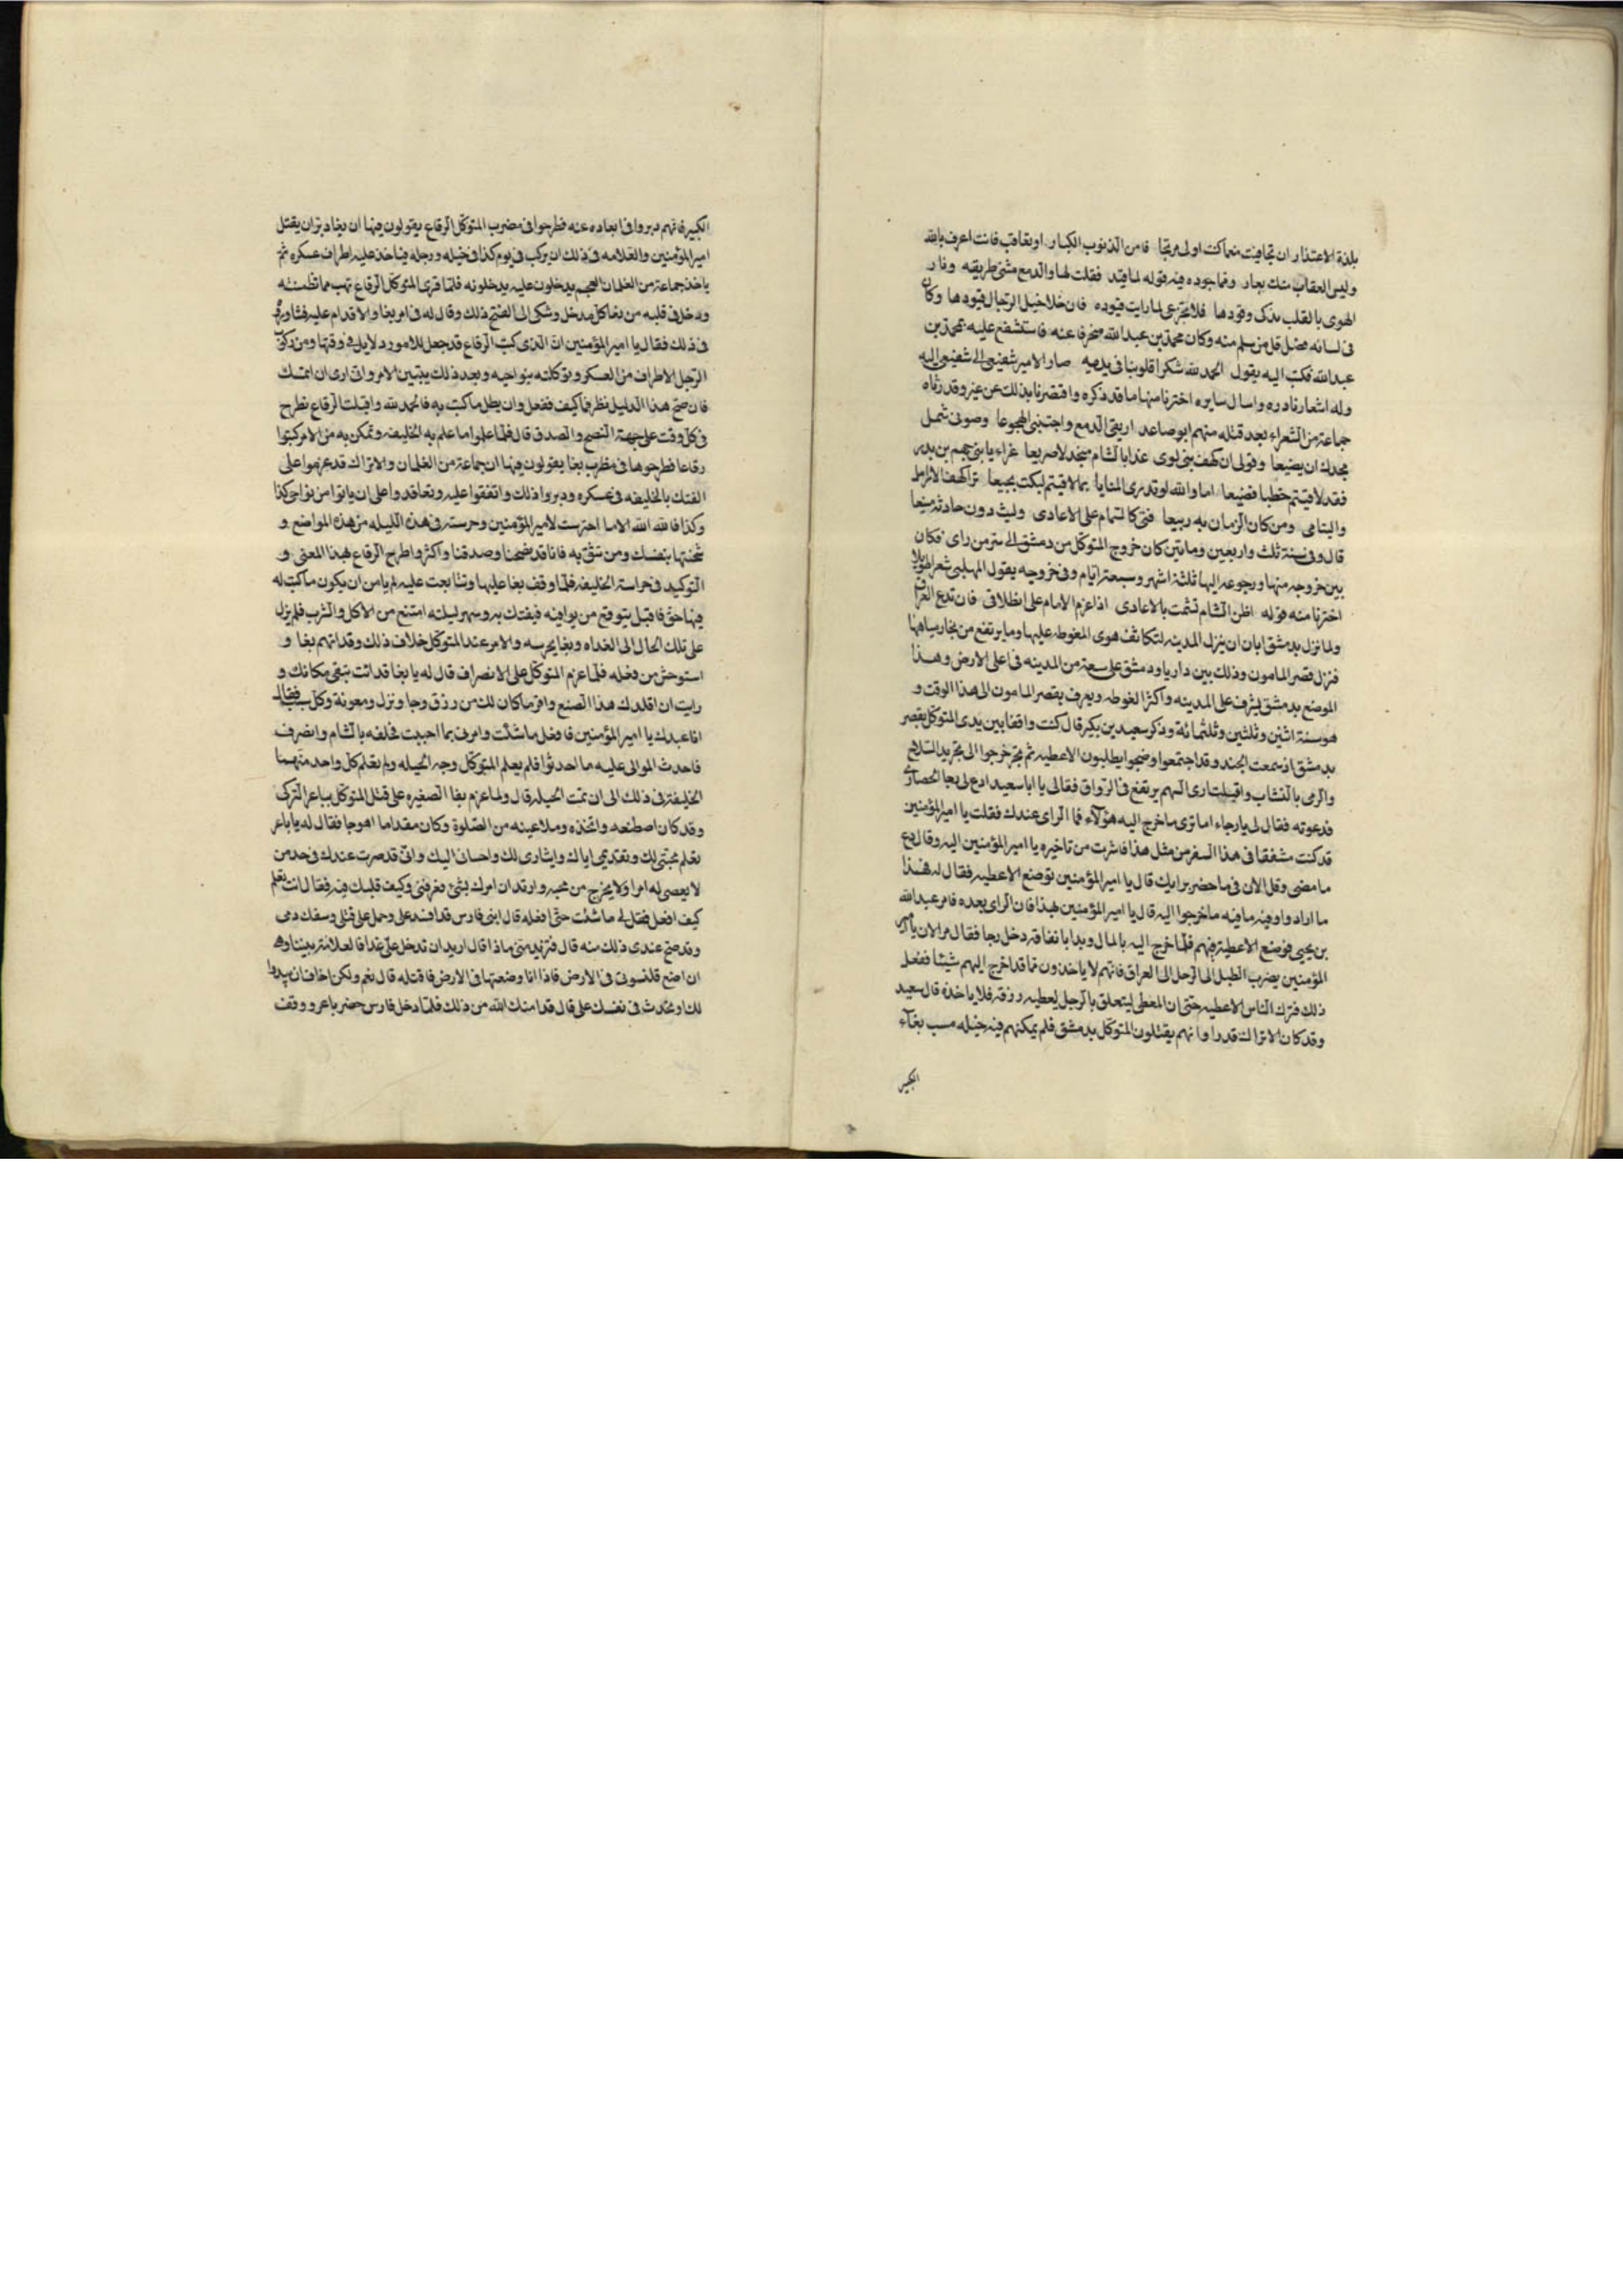 بلذة الاعتذار ان تجافيت منعما كنت اولى من الذنوب الكبار او تعاقب فانت اعرف بالله
وليس العقاب منك بعار ومما جوده فيه قوله لما قيد فقلت لها والدمع مشتى طريقه ونار
الهوى بالقلب يذكى وقودها فلا تجزعى لما رايت قيوده فان خلاخيل الرجال قيودها وكان
فى لسانه فضل قل من سلم منه وكان محمد بن عبدالله منحرفا عنه فاستشفع عليه بمحمد بن
عبدالله فكتب اليه يقول الحمد لله شكرا قلوبنا فى يديه صار الامير شفيعى الى شفيعى اليه
وله اشعار نادره وامثال سايره اخترنا منها ما قد ذكره واقتصرنا بذلك عن غيره وقد رثاه
جماعة من الشعراء بعد قتله منهم ابو صاعد اريقى الدمع واجتنبى الهجوعا وصونى شمل
مجدك ان يضيعا وقولى ان كهف بنى لوى غدا بالشام منجدلا صريعا عزاء يا بنى جهم بن بدر
فقد لاقيتم خطبا فضيعا اما والله لو تدرى المنايا بما لاقيتم لبكت نجيعا ترا كهف الارامل
واليتامى ومن كان الزمان به ربيعا فتى كالتمام على الاعادى وليث دون حادثة منيعا
قال وفى سنة ثلث واربعين ومايتين كان خروج المتوكل من دمشق الى سر من راى فكان
بين خروجه منها ورجوعه اليها ثلثة اشهر وسبعة ايام وفى خروجه يقول المهلبى شعرا طويلا
اخترنا منه قوله اظن الشام تشمت بالاعادى اذا عزم الامام على انطلاق فان تدع العراق
ولما نزل بدمشق ابان ان ينزل المدينه لتكاثف هوى الغوطه عليها وما يرتفع من بخار مياهها
فنزل قصر المامون وذلك بين داريا ودمشق على سعة من المدينه فى اعلى الارض وهذا
الموضع بدمشق يشرف على المدينه واكثر الغوطه ويعرف بقصر المامون الى هذا الوقت و
هو سنة اثنين وثلثين وثلثمائة وذكر سعيد بن بكير قال كنت واقفا بين يدى المتوكل بقصر
بدمشق اذ سمعت الجند وقد اجتمعوا وضجوا يطلبون الاعطيه ثم خرجوا الى تجريد السلاح
والرمى بالنشاب واقبلت ارى السهم يرتفع فى الرواق فقال لى يا ابا سعيد ادع لى رجا الحصارى
فدعوته فقال لى يا رجاء اما ترى ما خرج اليه هؤلاء فما الراى عندك فقلت يا امير المؤمنين
قد كنت مشفقا فى هذا السفر من مثل هذا فاشرت من تاخيره يا امير المؤمنين اليه وقال دع
ما مضى وقل الان فى ما حضر برايك قال يا امير المؤمنين توضع الاعطيه فقال له هذا
ما ارادوا وفيه ما فيه ما خرجوا اليه قال يا امير المؤمنين بهذا فان الراى بعده فامر عبدالله
بن يحيى فوضع الاعطية فيهم فلما خرج اليه بالمال وبدا بانفاقه دخل رجا فقال مر الان يا امير
المؤمنين يضرب الطبل الى الرحل الى العراق فانهم لا ياخذون مما قد اخرج اليهم شيئا ففعل
ذلك فترك الناس الاعطيه حتى ان المعطى ليتعلق بالرجل ليعطيه رزقه فلا ياخذه قال سعيد
وقد كان الاتراك قد راوا انهم يقتلون المتوكل بدمشق فلم يمكنهم فيه حيله بسبب بغاء
الكبير
الكبير فانهم دبروا فى ابعاده عنه فطرحوا فى مضرب المتوكل الرقاع يقولون فيها ان بغا دبر ان يقتل
امير المؤمنين والعلامه فى ذلك ان يركب فى يوم كذا فى خيله ورجله فياخذ عليه اطراف عسكره ثم
ياخذ جماعة من الغلمان العجم يدخلون عليه يدخلونه فلما قرى المتوكل الرقاع بهت مما تظمنته
ودخل فى قلبه من بغا كل مدخل وشكى الى الفتح ذلك وقال له فى امر بغا والاقدام عليه فشاوره
فى ذلك فقال يا امير المؤمنين ان الذى كتب الرقاع قد جعل للامور دلايل فى وقتها ومن ركوب
الرجل الاطراف من العسكر وتوكلته بنواحيه وبعد ذلك يتبين الامر وانى ارى ان اتمسك
فان صح هذا الدليل نظرنا كيف نفعل وان بطل ما كتب به فالحمد لله واقبلت الرقاع تطرح
فى كل وقت على جهة النصح والصدق قال فلما علموا ما علم به الخليفه وتمكن به من الامر كتبوا
رقاعا فطرحوها فى مظرب بغا يقولون فيها ان جماعة من الغلمان والاتراك قد عزموا على
الفتك بالخليفه فى عسكره ودبروا ذلك واتفقوا عليه وتعاقدوا على ان ياتوا من نواحى كذا
وكذا فالله الله الا ما احترست لامير المؤمنين وحرسته فى هذه الليله من هذه المواضع و
شحنتها بنفسك ومن تثق به فانا قد نصحنا وصدقنا واكثروا طرح الرقاع بهذا المعنى و
التوكيد فى حراسة الخليفه فلما وقف بغا عليها وتتابعت عليه لم يامن ان يكون ما كتب له
فيها حق فاقبل يتوقع من يوافيه فيفتك به وسهر ليلته امتنع من الاكل والشرب فلم يزل
على تلك الحال الى الغداه وبغا يحرسه والامر عند المتوكل خلاف ذلك وقد اتهم بغا و
استوحش من فعله فلما عزم المتوكل على الانصراف قال له يا بغا قد اثت تبقى مكانك و
رايت ان اقلدك هذا الصنع واقر ما كان لك من رزق وجا ونزل ومعونة وكل سبب فقال
انا عبدك يا امير المؤمنين فافعل ما شئت وامرنى بما احببت فخلفه بالشام وانصرف
فاحدث الموالى عليه ما احدثوا فلم يعلم المتوكل وجه الحيله ولم يعلم كل واحد منهما
الخليفة فى ذلك الى ان تمت الحيله قال ولما عزم بغا الصغيره على قتل المتوكل بباعر التركى
وقد كان اصطنعه واتخذه وملا عينه من الصلوة وكان مقداما اهوجا فقال له يا باعر
تعلم محبتى لك وتقديمى اياك وايثارى لك واحسانى اليك وانى قد صرت عندك فى حد من
لا يعصى له امرا ولا يخرج من محبه واريد ان امرك بشئ فعرفنى وكيف قلبك فيه فقال انت تعلم
كيف افعل فقل لى ما شئت حتى افعله قال ابنى فارس قد افسد على وحمل على قتلى وسفك دمى
وقد صح عندى ذلك منه قال فتريد منى ماذا قال اريد ان تدخل على غدا فالعلامة بيننا وهو
ان اضع قلنسوتى فى الارض فاذا انا وضعتها فى الارض فاقتله قال نعم ولكن اخاف ان يبدوا
لك او تحدث فى نفسك على قال قد امنك الله من ذلك فلما دخل فارس حضر باعر ووقف